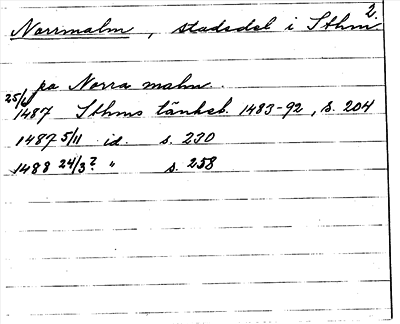 2.
Norrmalm, stadsdel i Sthm.
pa Norra malm.
25/6 1487 Sthms tänkeb. 1483-92, s. 204
1487 5/11 id. s. 230
1488 24/3? " s. 258